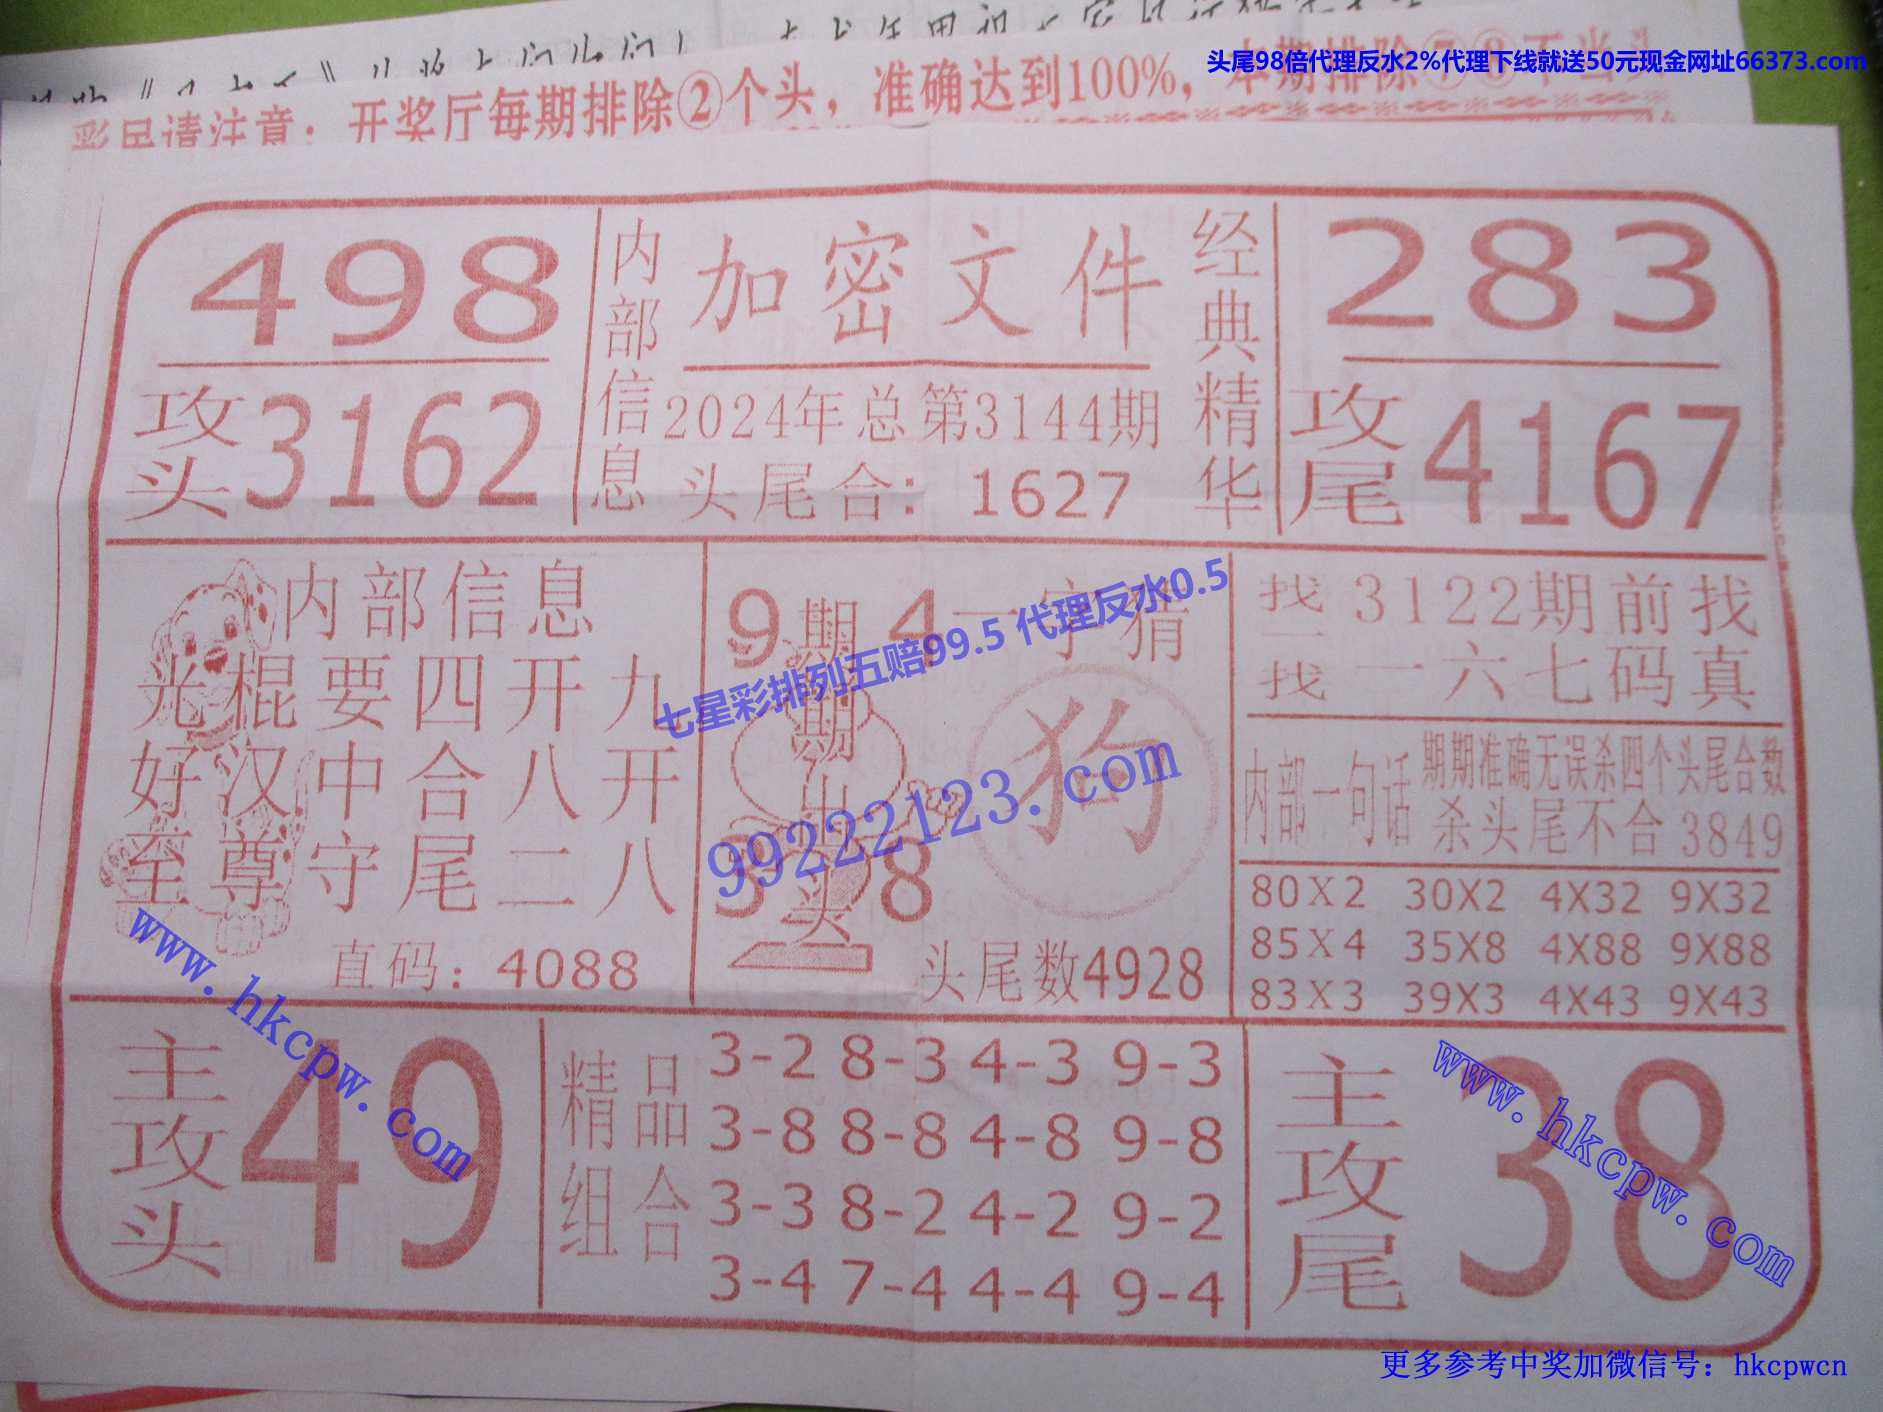 头尾98倍代理反水2%代理下线就送50元现金网址66373.com
彩民请注意：开奖厅每期排除②个头，准确达到100%，本期排除
498
攻头3162
内部信息
加密文件
2024年总第3144期
头尾合：1627
经典精华
283
攻尾4167
内部信息
光棍要四开九
好汉中合八开
至尊守尾二八
直码：4088
9 4
期期出头
3 8
一字猜
狗
头尾数4928
找一找
3122期前找
一六七码真
内部一句话
期期准确无误杀四个头尾合数
杀头尾不合3849
80X2 30X2 4X32 9X32
85X4 35X8 4X88 9X88
83X3 39X3 4X43 9X43
七星彩排列五赔99.5 代理反水0.5
99222123.com
www.hkcpw.com
主攻头
49
精品组合
3-2 8-3 4-3 9-3
3-8 8-8 4-8 9-8
3-3 8-2 4-2 9-2
3-4 7-4 4-4 9-4
主攻尾
38
www.hkcpw.com
更多参考中奖加微信号：hkcpwcn